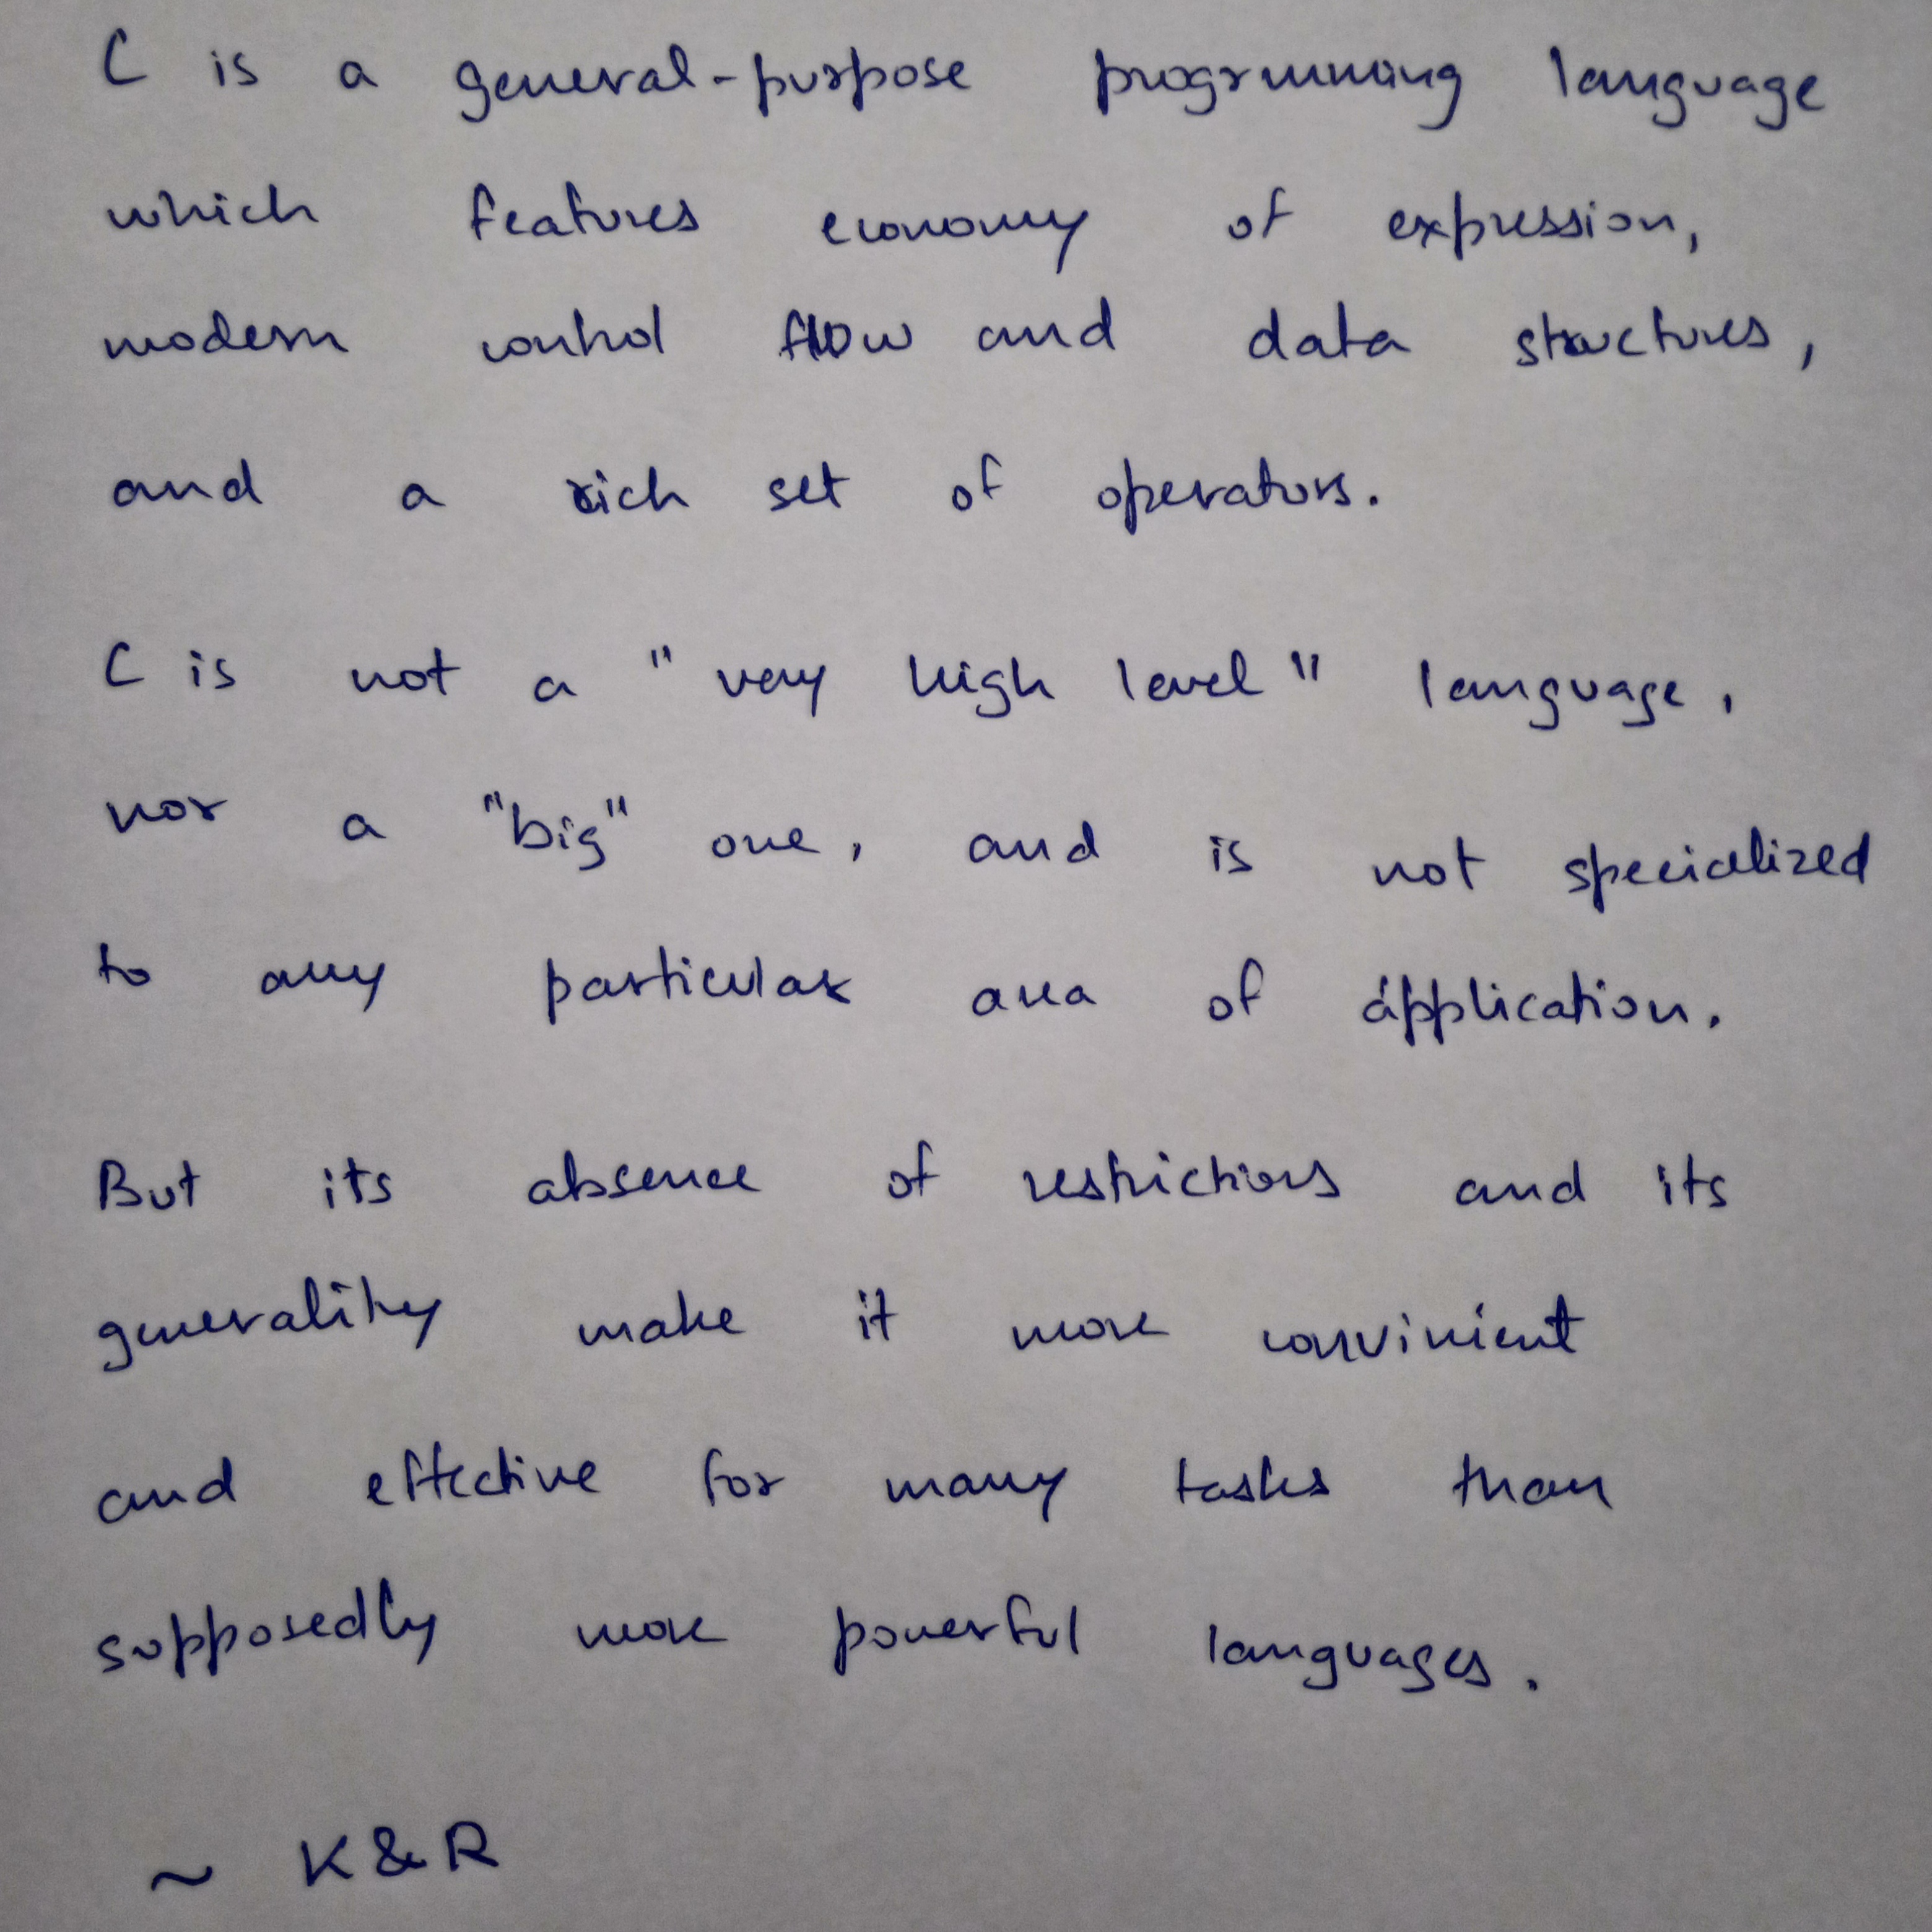 C is a general-purpose programming language
which features economy of expression,
modern control flow and data structures,
and a rich set of operators.
C is not a "very high level" language,
nor a "big" one, and is not specialized
to any particular area of application.
But its absence of restrictions and its
generality make it more convinient
and effective for many tasks than
supposedly more powerful languages.
~ K&R